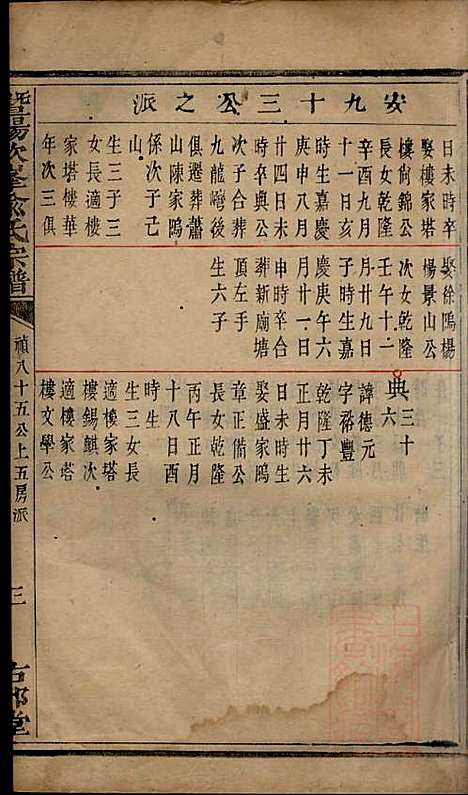 安九十三公之派
日未時卒
娶樓家塔
樓尙錦公
長女乾隆
辛酉九月
十一日亥
時生嘉慶
庚申八月
廿四日未
時卒與公
次子合葬
九龍灣後
俱遷葬蕭
山陳家塢
係次子己
山
生三子三
女長適樓
家塔樓華
年次三俱
娶徐塢楊
楊景山公
次女乾隆
壬午十一
月廿九日
子時生嘉
慶庚午六
月廿一日
申時卒合
葬新廟塘
頂左手
生六子
典三十六
諱德元
字裕豐
乾隆丁未
正月廿六
日未時生
娶盛家塢
章正備公
長女乾隆
丙午正月
十八日酉
時生
生三女長
適樓家塔
樓錫麒次
適樓家塔
樓文學公
暨陽次峯俞氏宗譜
禎八十五公上五房派
三
堂